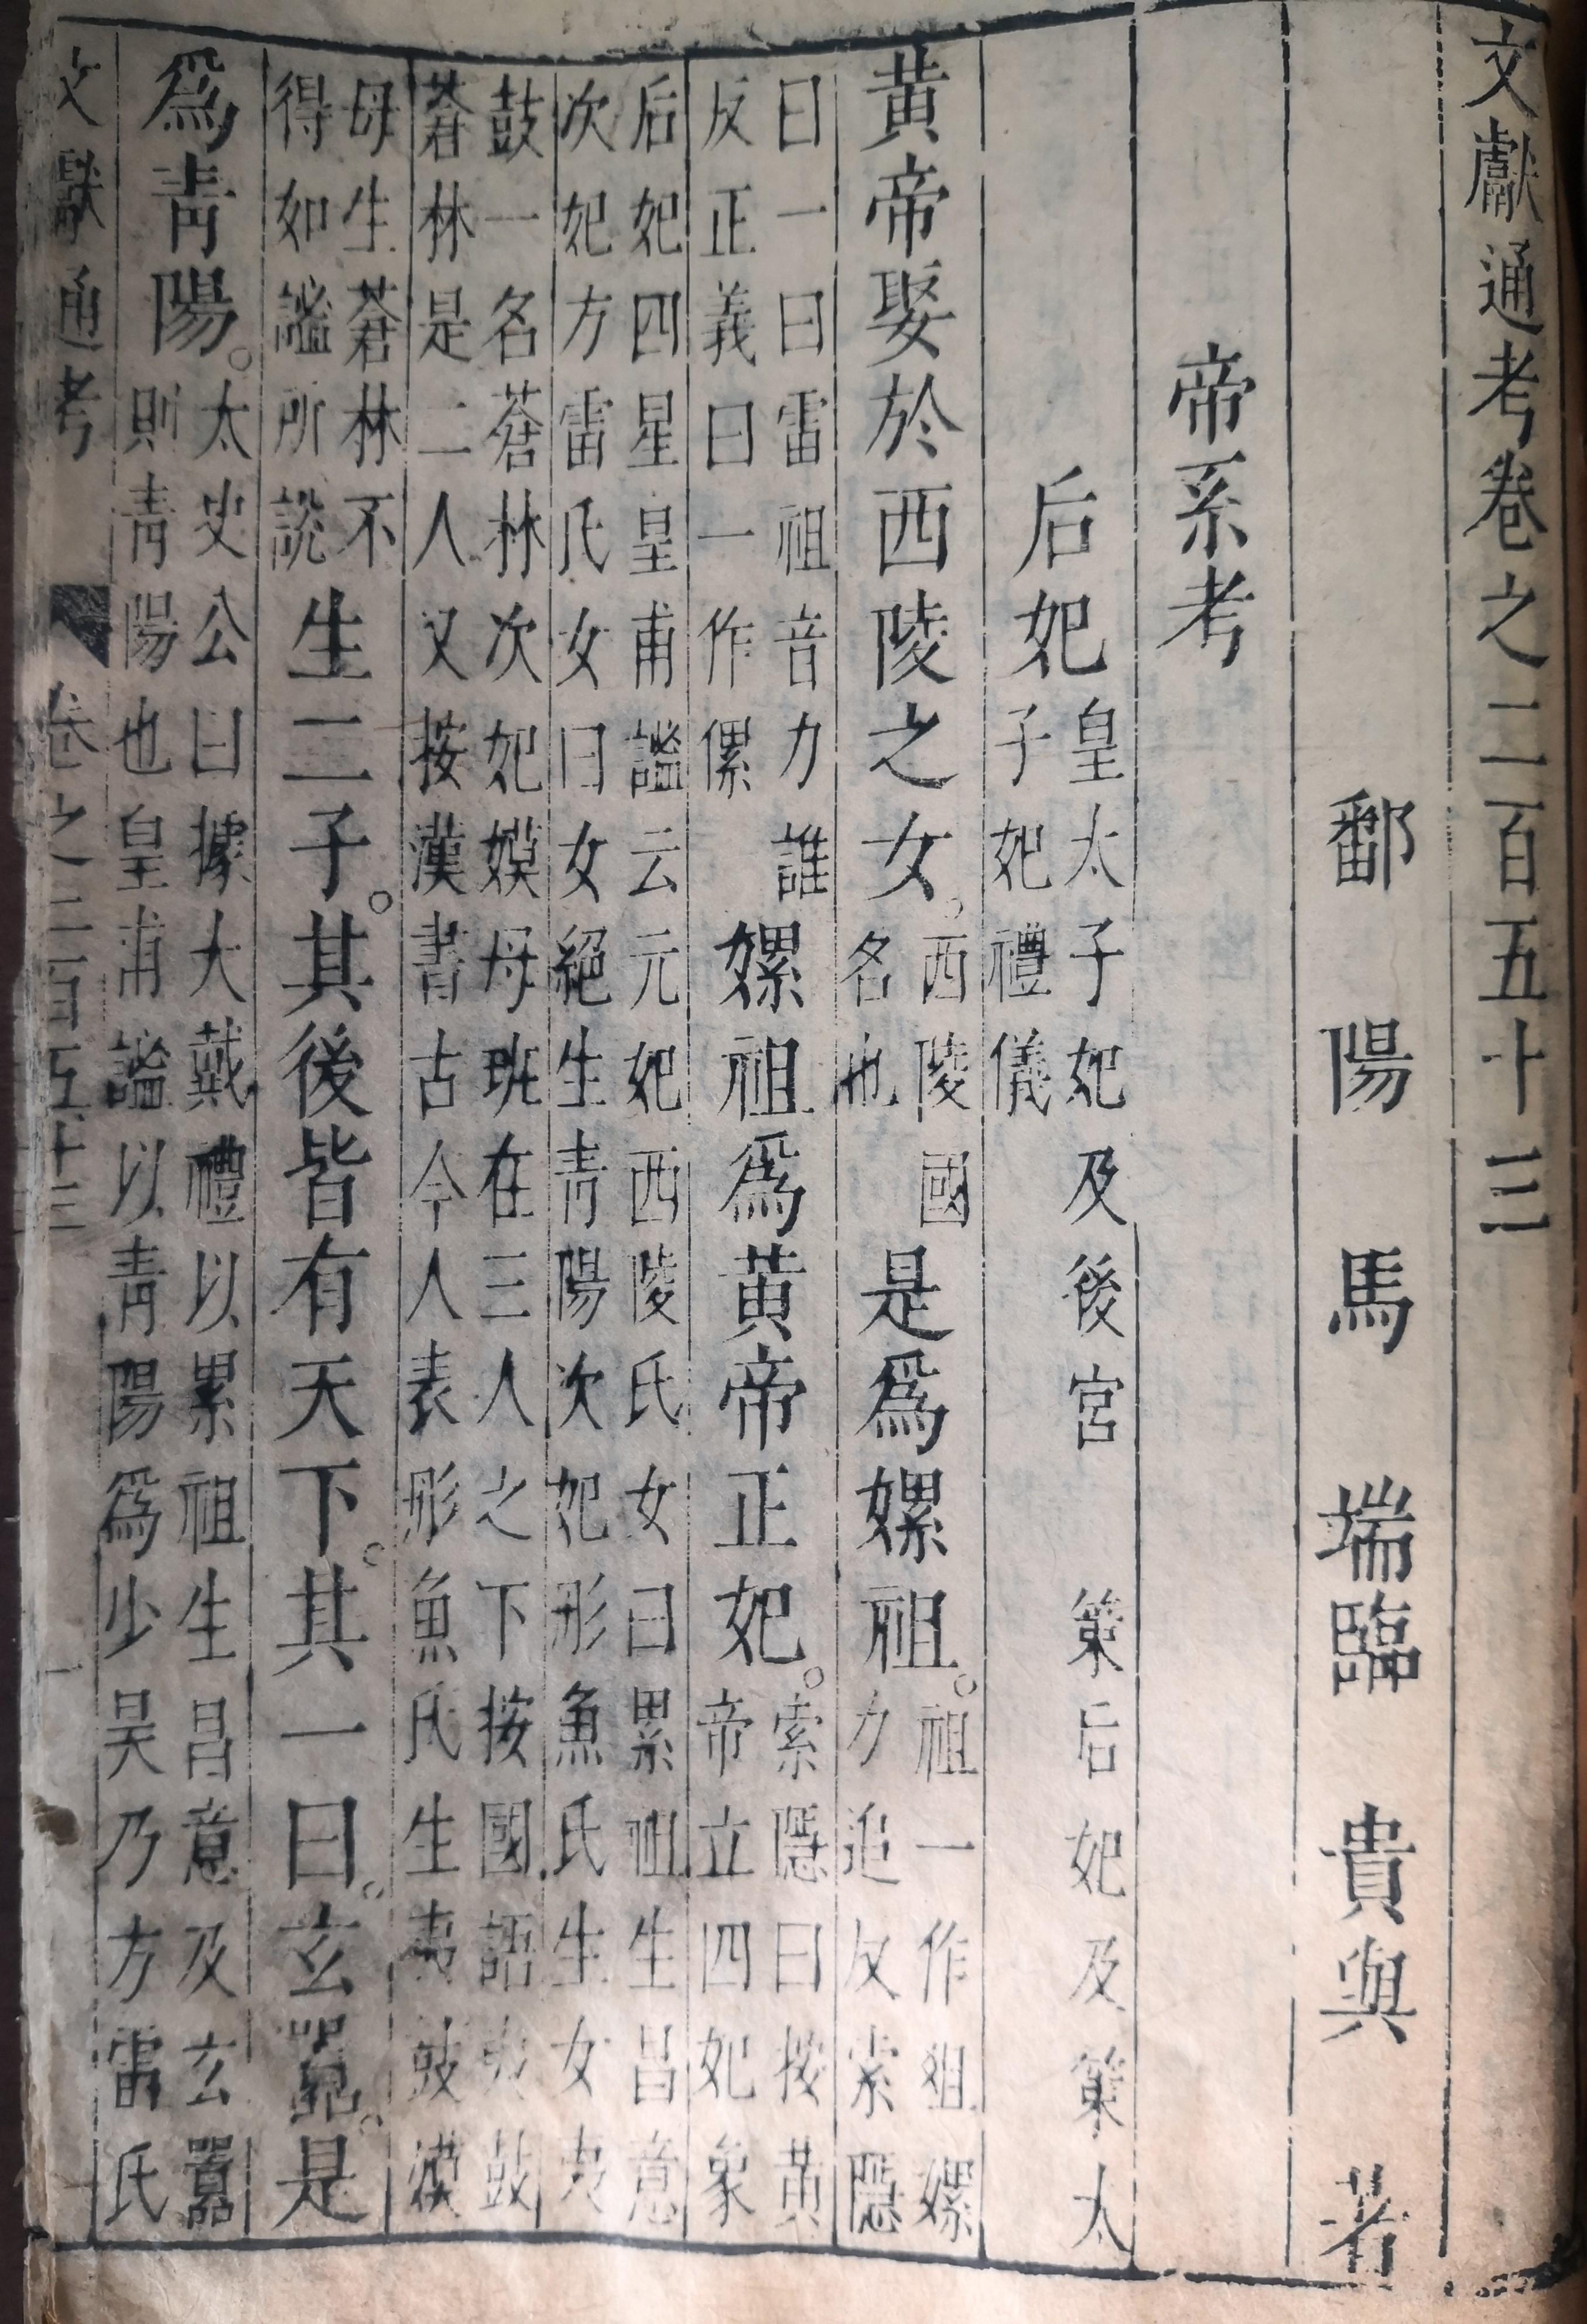 文獻通考卷之二百五十三
鄱陽馬端臨貴與著
帝系考
后妃皇太子妃及後宮　策后妃及策太
子妃禮儀
黃帝娶於西陵之女。西陵國
名也是為嫘祖。祖一作俎嫘
力追反索隱
曰一曰雷祖音力誰
反正義曰一作傫嫘祖為黃帝正妃。索隱曰按黃
帝立四妃象
后妃四星皇甫謐云元妃西陵氏女曰累祖生昌意
次妃方雷氏女曰女絕生青陽次妃彤魚氏生女夷
鼓一名蒼林次妃嫫母班在三人之下按國語夷鼓
蒼林是二人又按漢書古今人表彤魚氏生夷鼓嫫
母生蒼林不
得如謐所說生二子。其後皆有天下。其一曰。玄囂。是
為青陽。太史公曰據大戴禮以累祖生昌意及玄囂
則青陽也皇甫謐以青陽為少昊乃方雷氏
文獻通考　卷之二百五十三　一